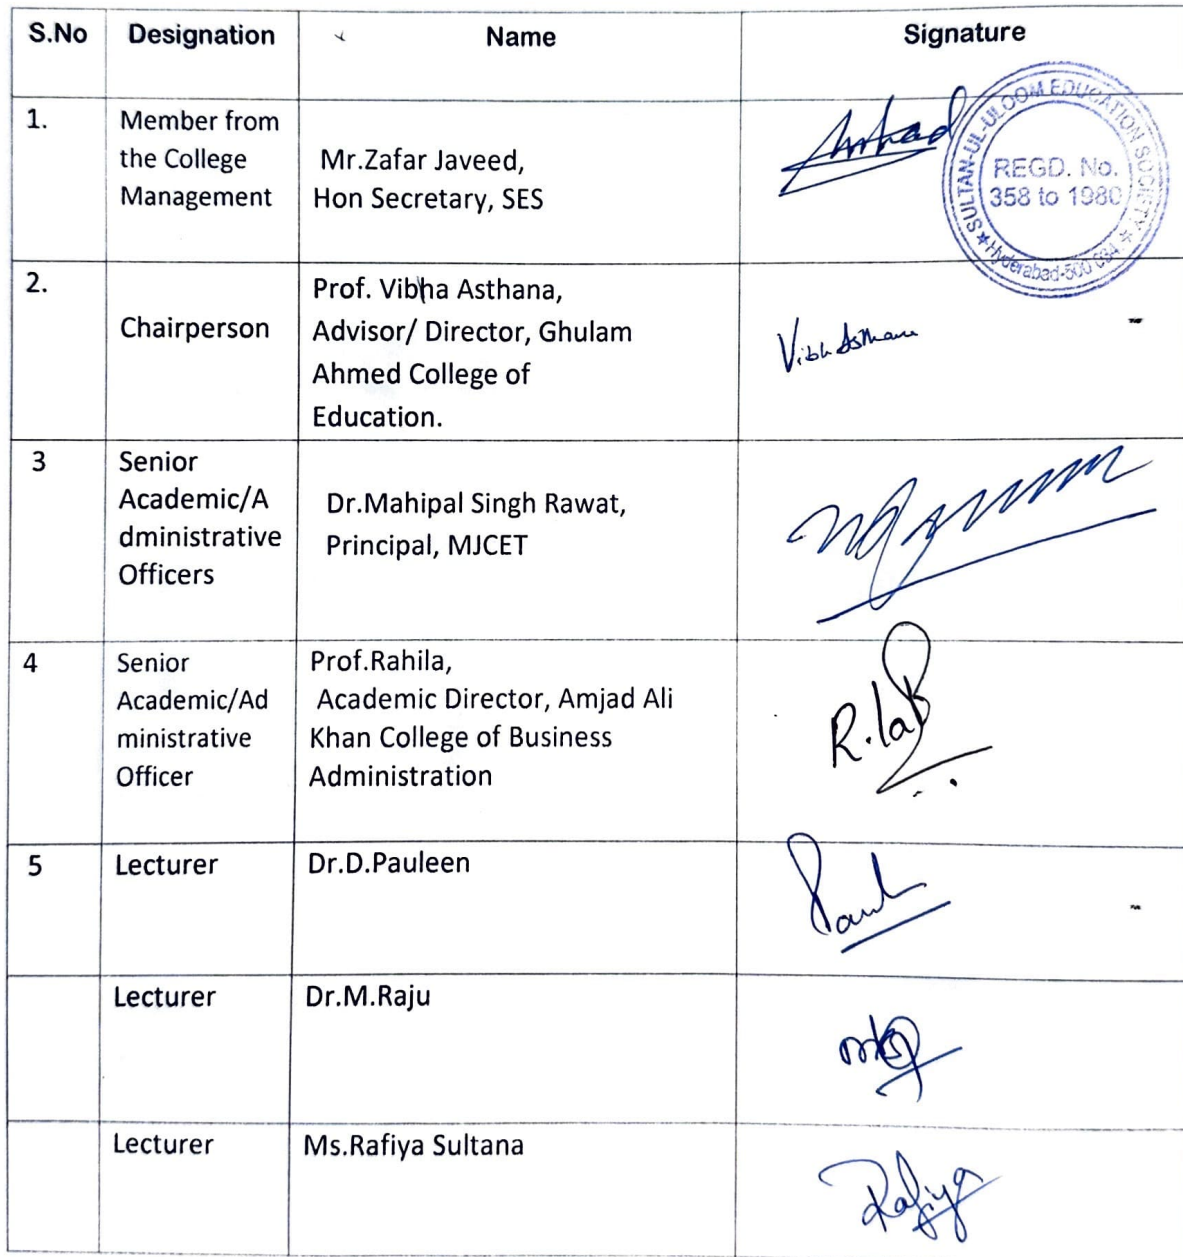 S.No Designation Name Signature
1. Member from
the College
Management
Mr.Zafar Javeed,
Hon Secretary, SES
SULTAN-UL-ULOOM EDUCATION SOCIETY
REGD. No.
358 to 1980
Hyderabad-500 034.
2. Chairperson
Prof. Vibha Asthana,
Advisor/ Director, Ghulam
Ahmed College of
Education.
Vibh Asthana
3 Senior
Academic/A
dministrative
Officers
Dr.Mahipal Singh Rawat,
Principal, MJCET
4 Senior
Academic/Ad
ministrative
Officer
Prof.Rahila,
Academic Director, Amjad Ali
Khan College of Business
Administration
5 Lecturer Dr.D.Pauleen
Lecturer Dr.M.Raju
Lecturer Ms.Rafiya Sultana
Rafiya